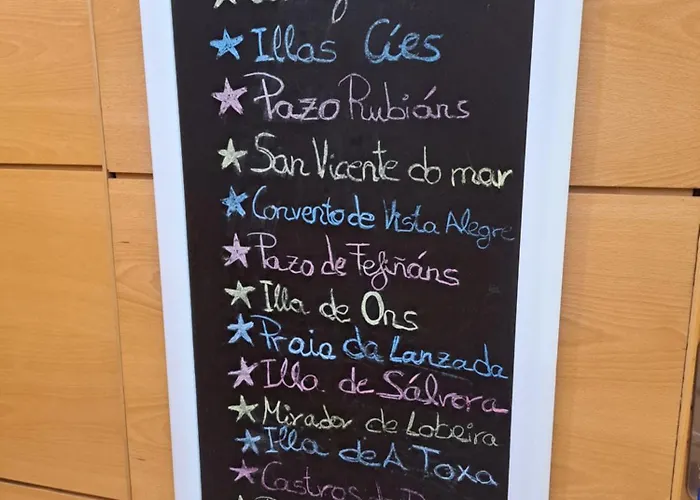 Illas Cíes
Pazo Rubiáns
San Vicente do mar
Convento de Vista Alegre
Pazo de Fefiñáns
Illa de Ons
Praia da Lanzada
Illa de Sálvora
Mirador de Lobeira
Illa de A Toxa
Castros de